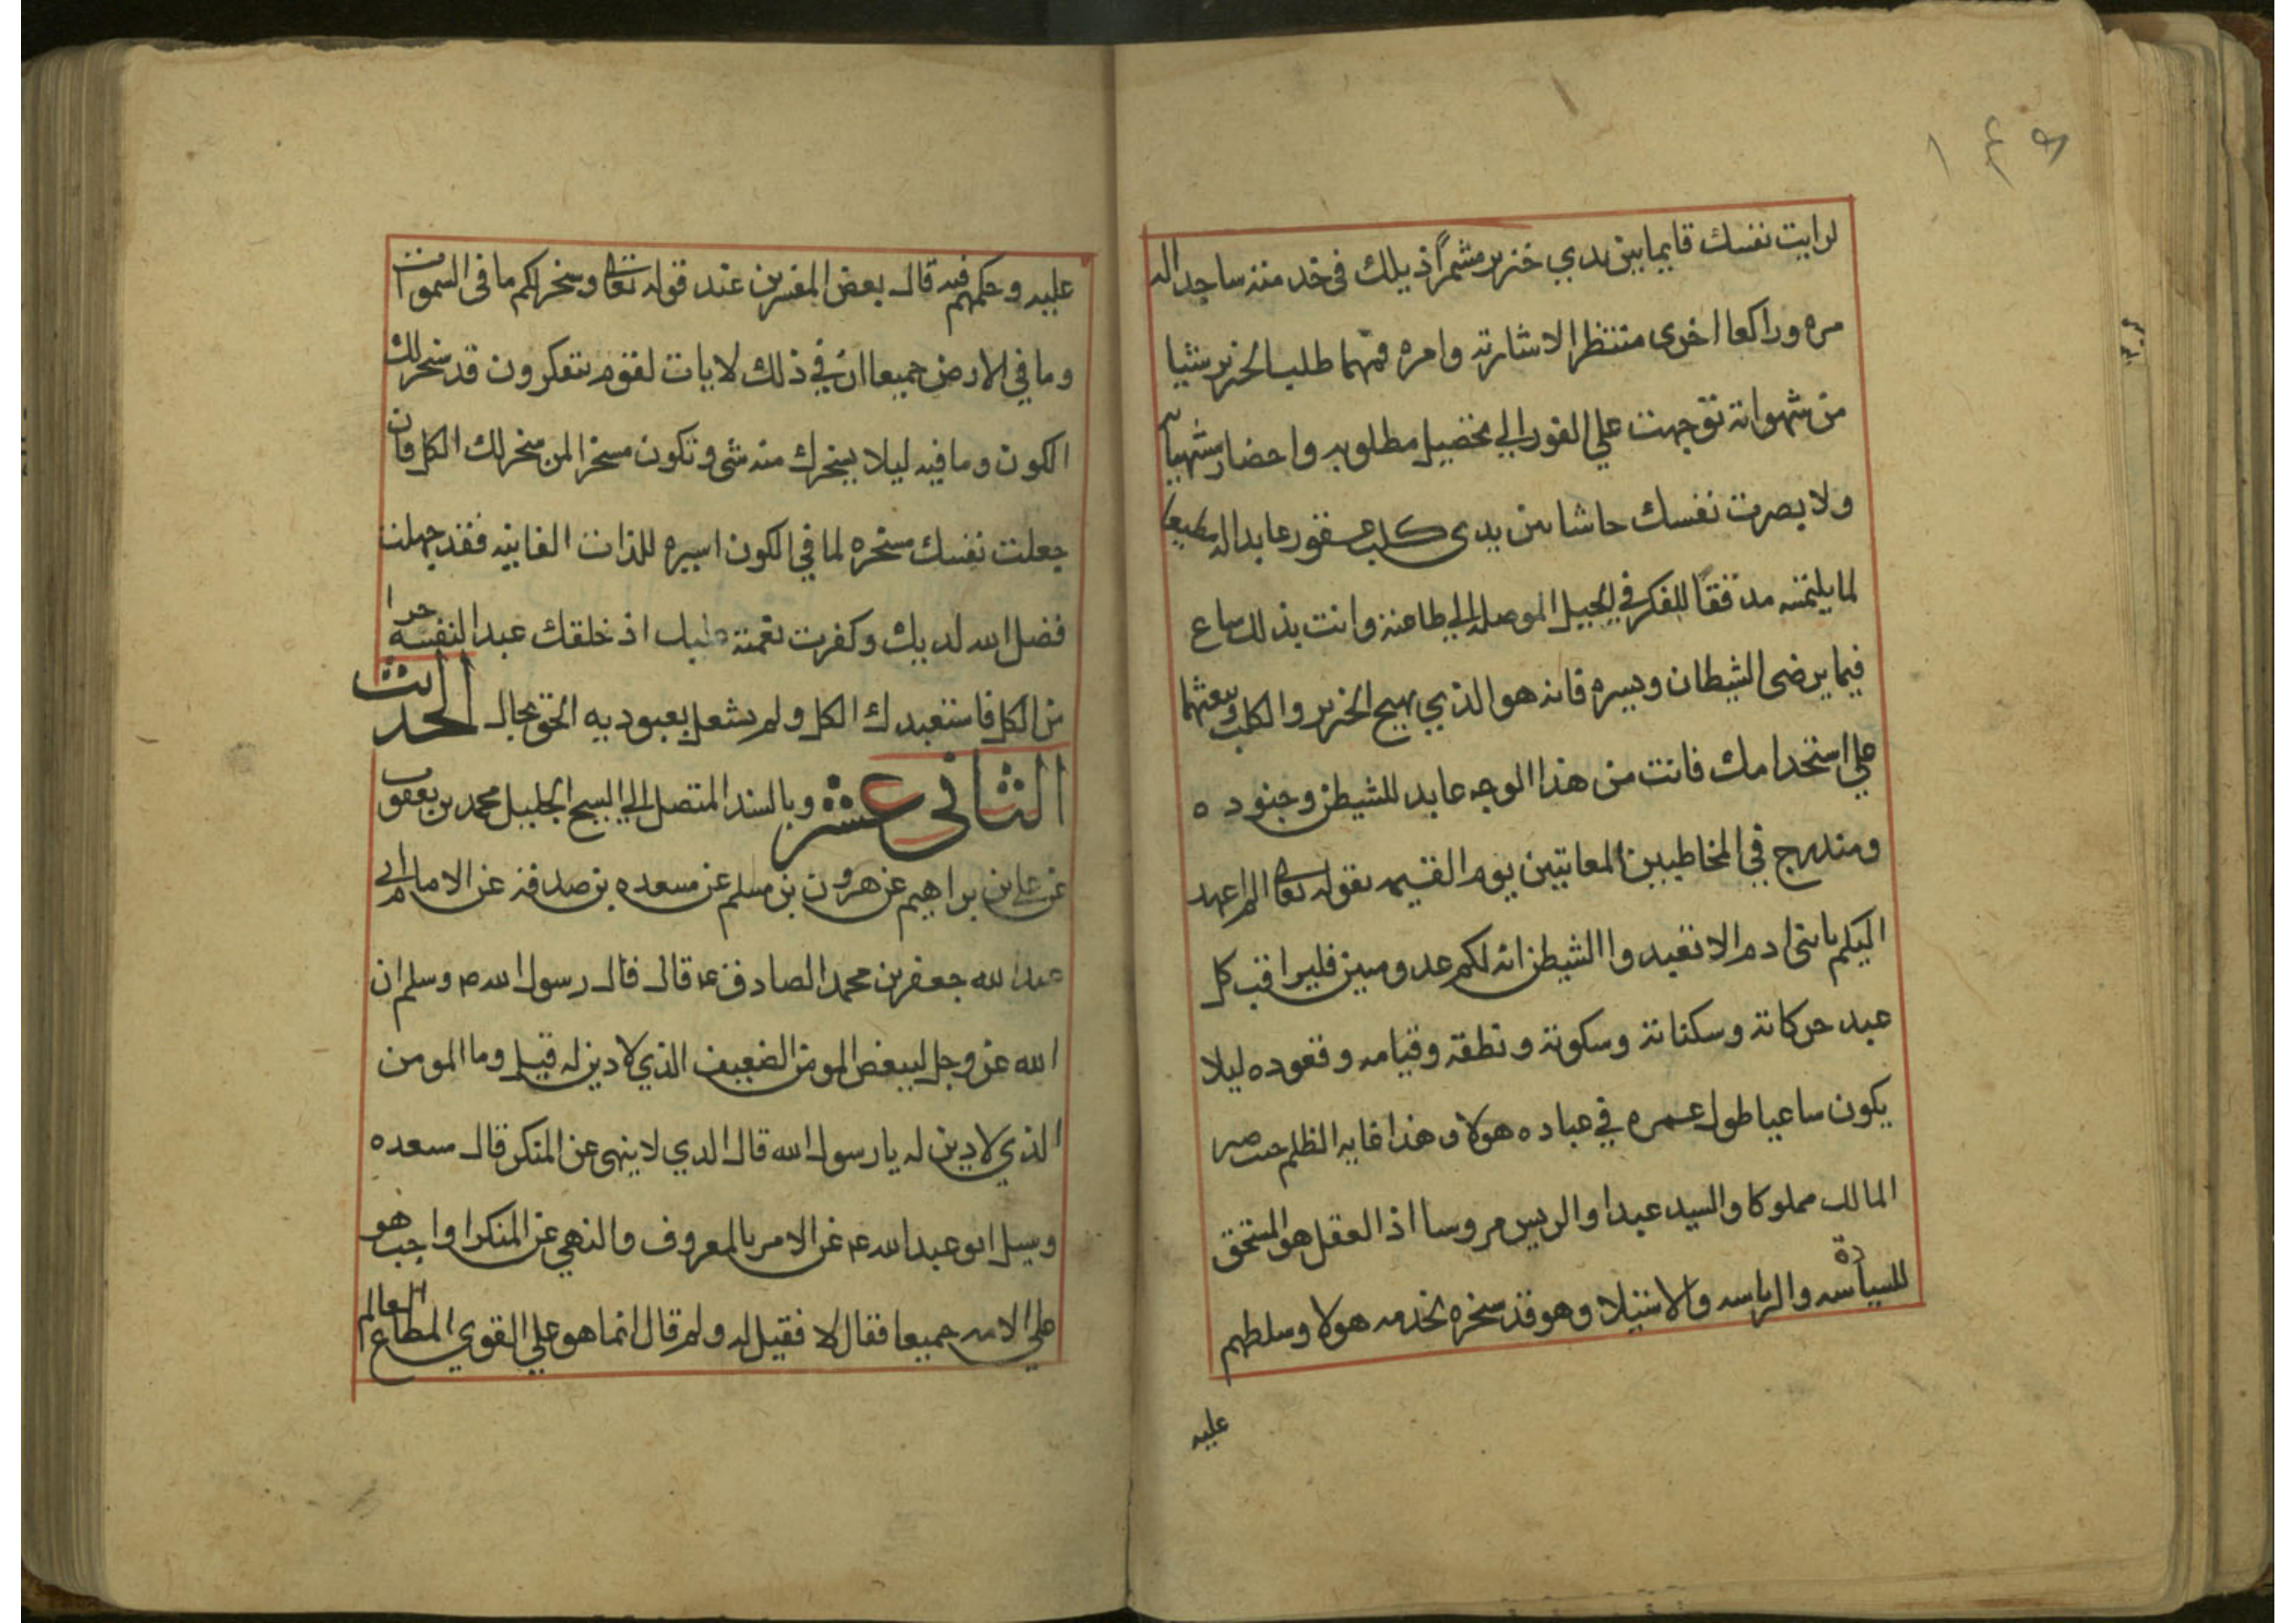 ١٣٩
لرايت نفسك قايما بين يدي خنزير مشمرًا ذيلك في خدمته ساجدا له
مره وراكعا اخرى منتظرا لاشارته وامره فمهما طلب الخنزير شيا
من شهواته توجهت علي الفور الي تحصيل مطلوبه واحضار مشتهياته
ولابصرت نفسك جاشا بين يدي كلب عقور عابدا له مطيعا
لما يلتمسه مدققا للفكر في الحيل الموصله الي طاعته وانت بذلك ساع
فيما يرضى الشيطان ويسره فانه هو الذي يهيج الخنزير والكلب ويبعثهما
علي استخدامك فانت من هذا الوجه عابد للشيطن وجنوده
ومندرج في المخاطبين المعاتبين يوم القيمه بقوله تعالى الم اعهد
اليكم يا بنى ادم الا تعبدوا الشيطن انه لكم عدو مبين فليراقب كل
عبد حركاته وسكناته وسكوته ونطقه وقيامه وقعوده ليلا
يكون ساعيا طول عمره في عباده هولاء وهذا غايه الظلم حيث صير
المالك مملوكا والسيد عبدا والريس مروسا اذ العقل هو المستحق
للسيادة والرياسه والاستيلا وهو قد سخره لخدمه هولا وسلطهم
عليه
عليه وحكمهم فيه قال بعض المفسرين عند قوله تعالى وسخر لكم ما فى السموات
وما في الارض جميعا ان في ذلك لايات لقوم يتفكرون قد سخر لك
الكون وما فيه ليلا يسخرك منه شى وتكون مسخرا لمن سخر لك الكل فان
جعلت نفسك مسخره لما في الكون اسيره للذات الفانيه فقد جهلت
فضل الله لديك وكفرت نعمته عليك اذ خلقك عبدا لنفسه حرا
من الكل فاستعبدك الكل ولم تشعل بعبوديه الحق بحال الحديث
الثانى عشر وبالسند المتصل الي الشيخ الجليل محمد بن يعقوب
عن علي بن ابراهيم عن هرون بن مسلم عن مسعده بن صدقه عن الامام ابي
عبد الله جعفر بن محمد الصادق ع قال قال رسول الله ص وسلم ان
الله عز وجل ليبغض المومن الضعيف الذي لا دين له قيل وما المومن
الذي لا دين له يا رسول الله قال الدي لا ينهى عن المنكر قال مسعده
وسيل ابو عبد الله ع عن الامر بالمعروف والنهي عن المنكر اواجب هو
علي الامه جميعا فقال لا فقيل له ولم قال انما هو علي القوي المطاع العالم